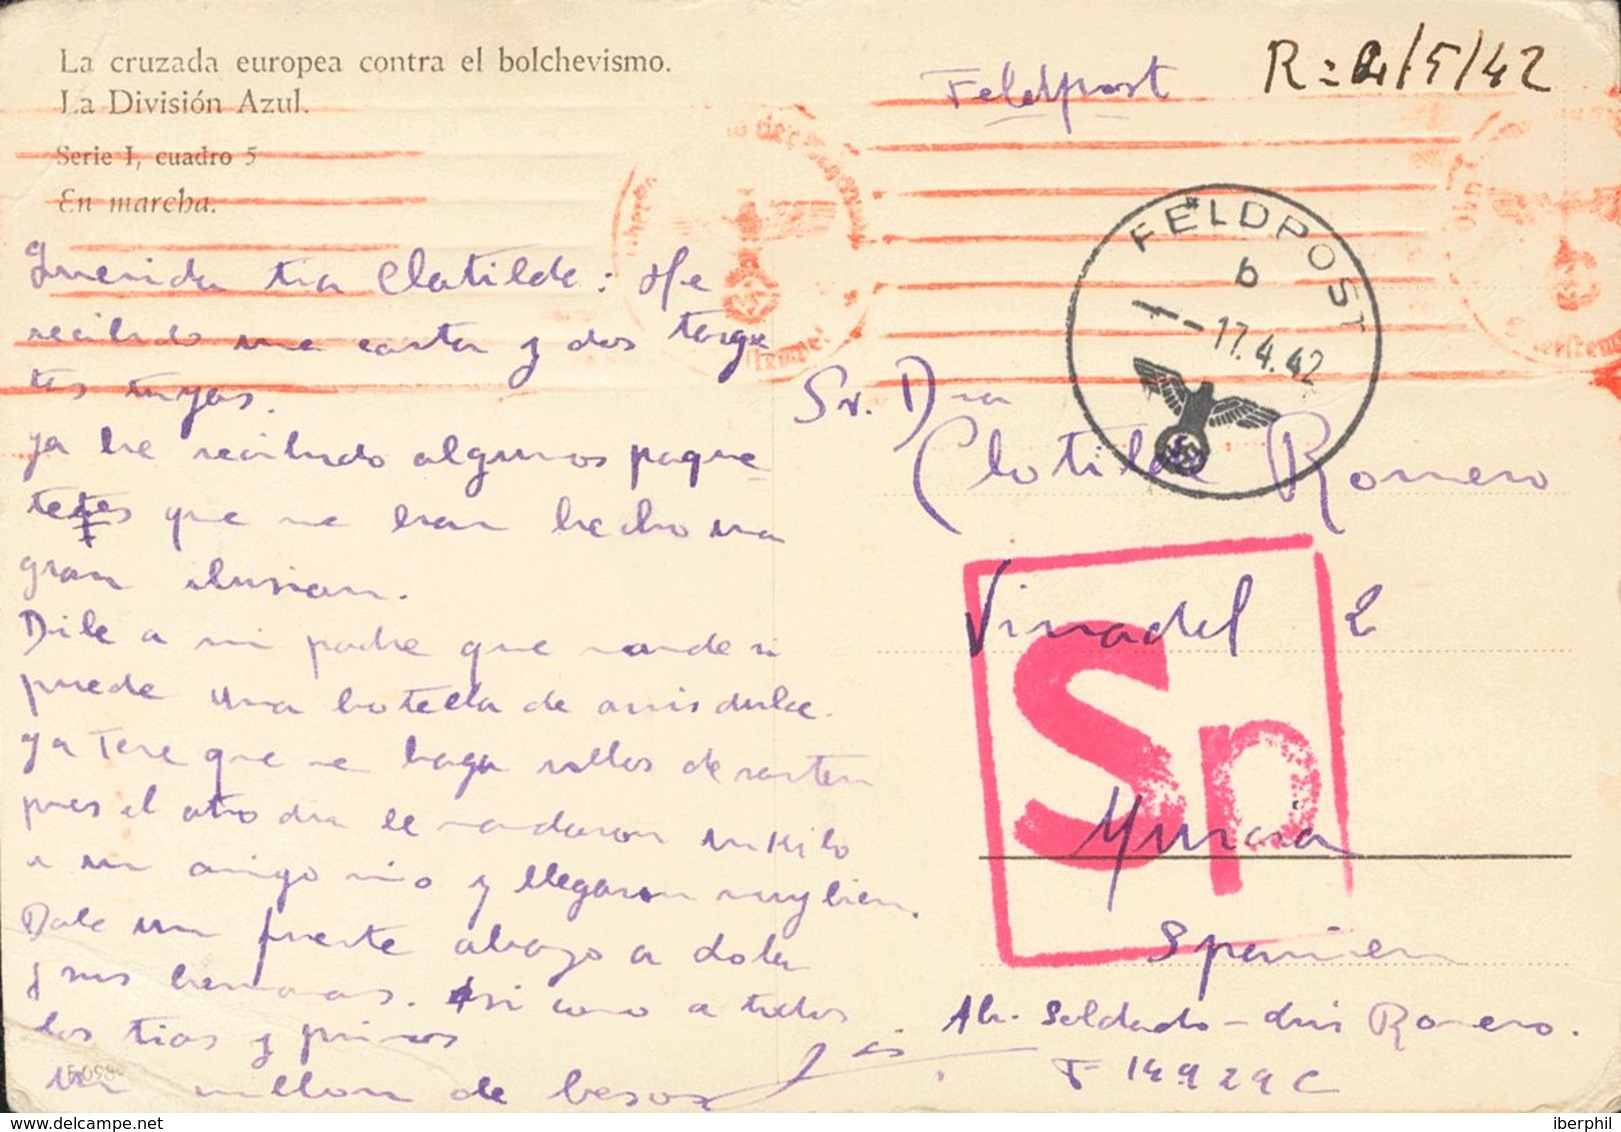 La cruzada europea contra el bolchevismo.
La División Azul.
Serie I, cuadro 5
En marcha.
Feldpost
R=2/5/42
FELDPOST
b
-17.4.42
Querida tia Clotilde: He
recibido una carta y dos targe
tas tuyas.
ya he recibido algunos paque-
tes que me han hecho una
gran ilusion.
Dile a mi padre que mande si
puede una botella de anis dulce.
ya
que me haga
de
pues el otro dia le mandaron un Kilo
a un amigo mio y llegaron muy bien.
Dale un fuerte abrazo a Lola
y sus hermanas. Asi como a todos
los tios y primos
Un millon de besos
Luis
Sr. Dña
Clotilde Romero
Vinadel 2
Murcia
Spanien
Sp
Ab. Soldado - Luis Romero.
F 14929 C
iberphil